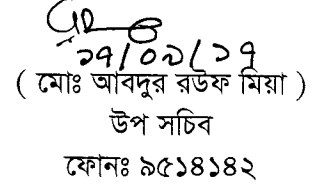 ১৭/০৯/১৭
( মোঃ আবদুর রউফ মিয়া )
উপ সচিব
ফোনঃ ৯৫১৪১৪২